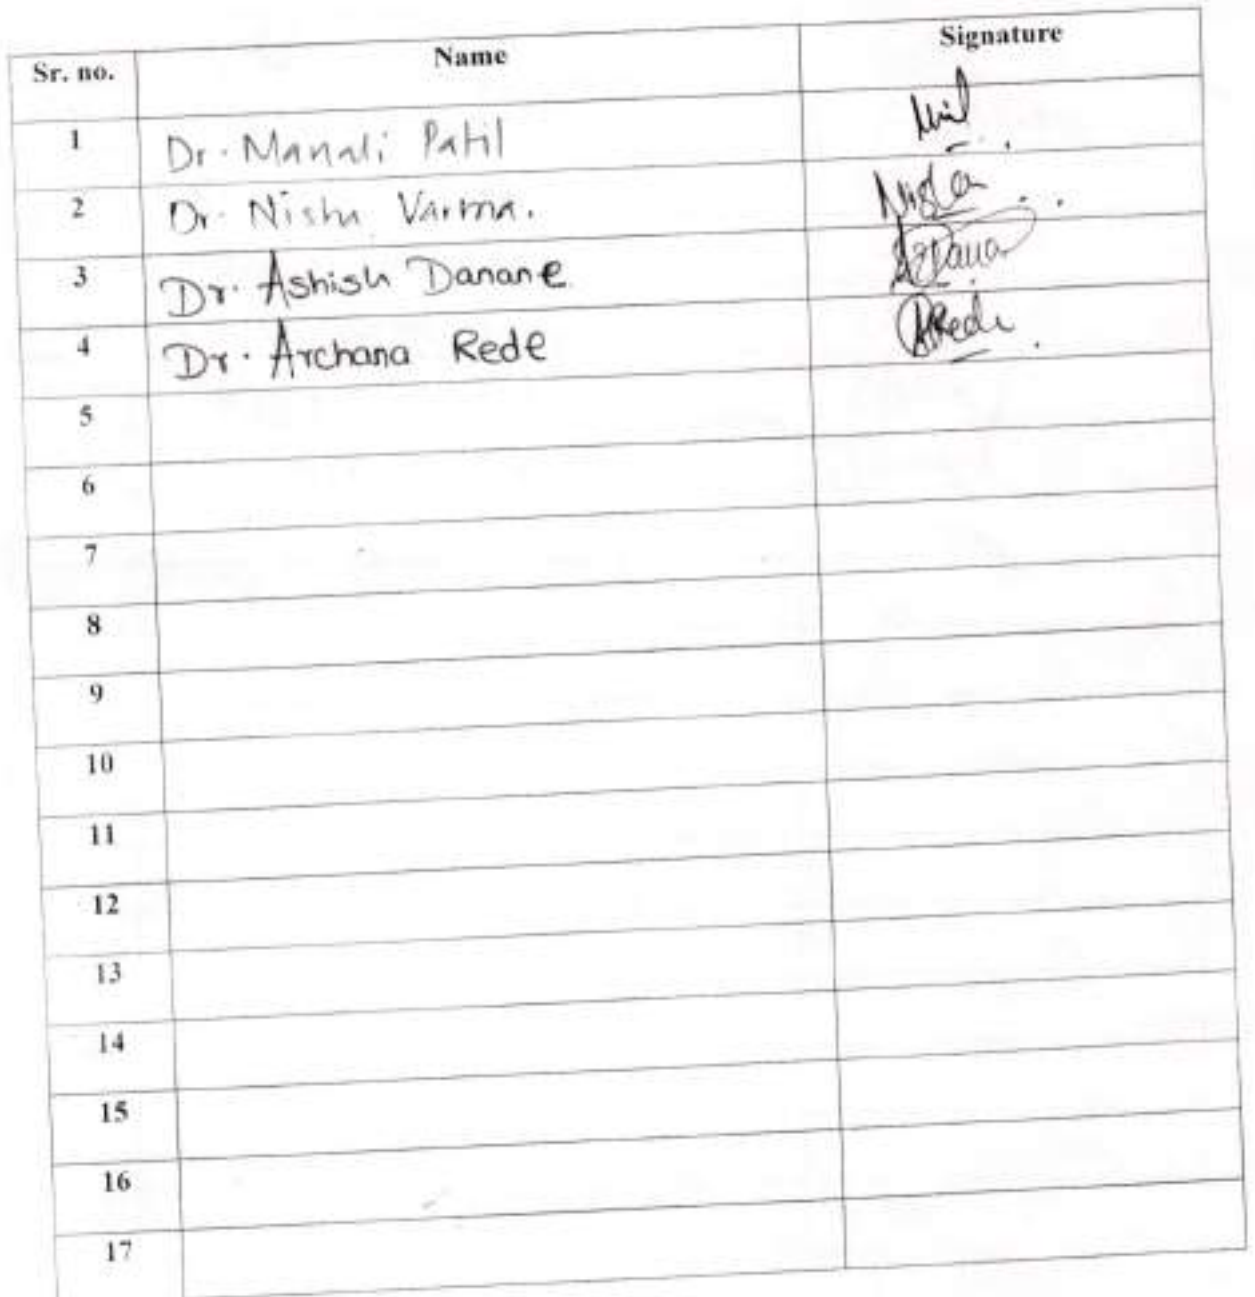 Sr. no. Name Signature
1 Dr. Manali Patil
2 Dr. Nisha Varma. Nisha
3 Dr. Ashish Danane
4 Dr. Archana Rede ARede
5
6
7
8
9
10
11
12
13
14
15
16
17